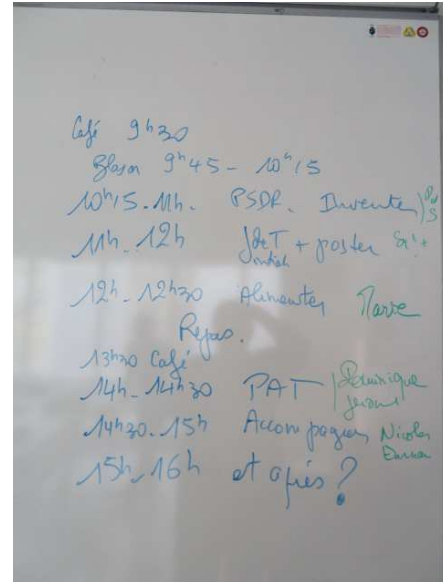 Café 9h30
Blason 9h45 - 10h15
10h15 - 11h - PSDR. Inventer
11h - 12h JdeT + poster
12h - 12h30 Alimenter
Repas.
13h30 Café
14h - 14h30 PAT Dominique
14h30 - 15h Accompagner Nicolas
15h - 16h et après ?